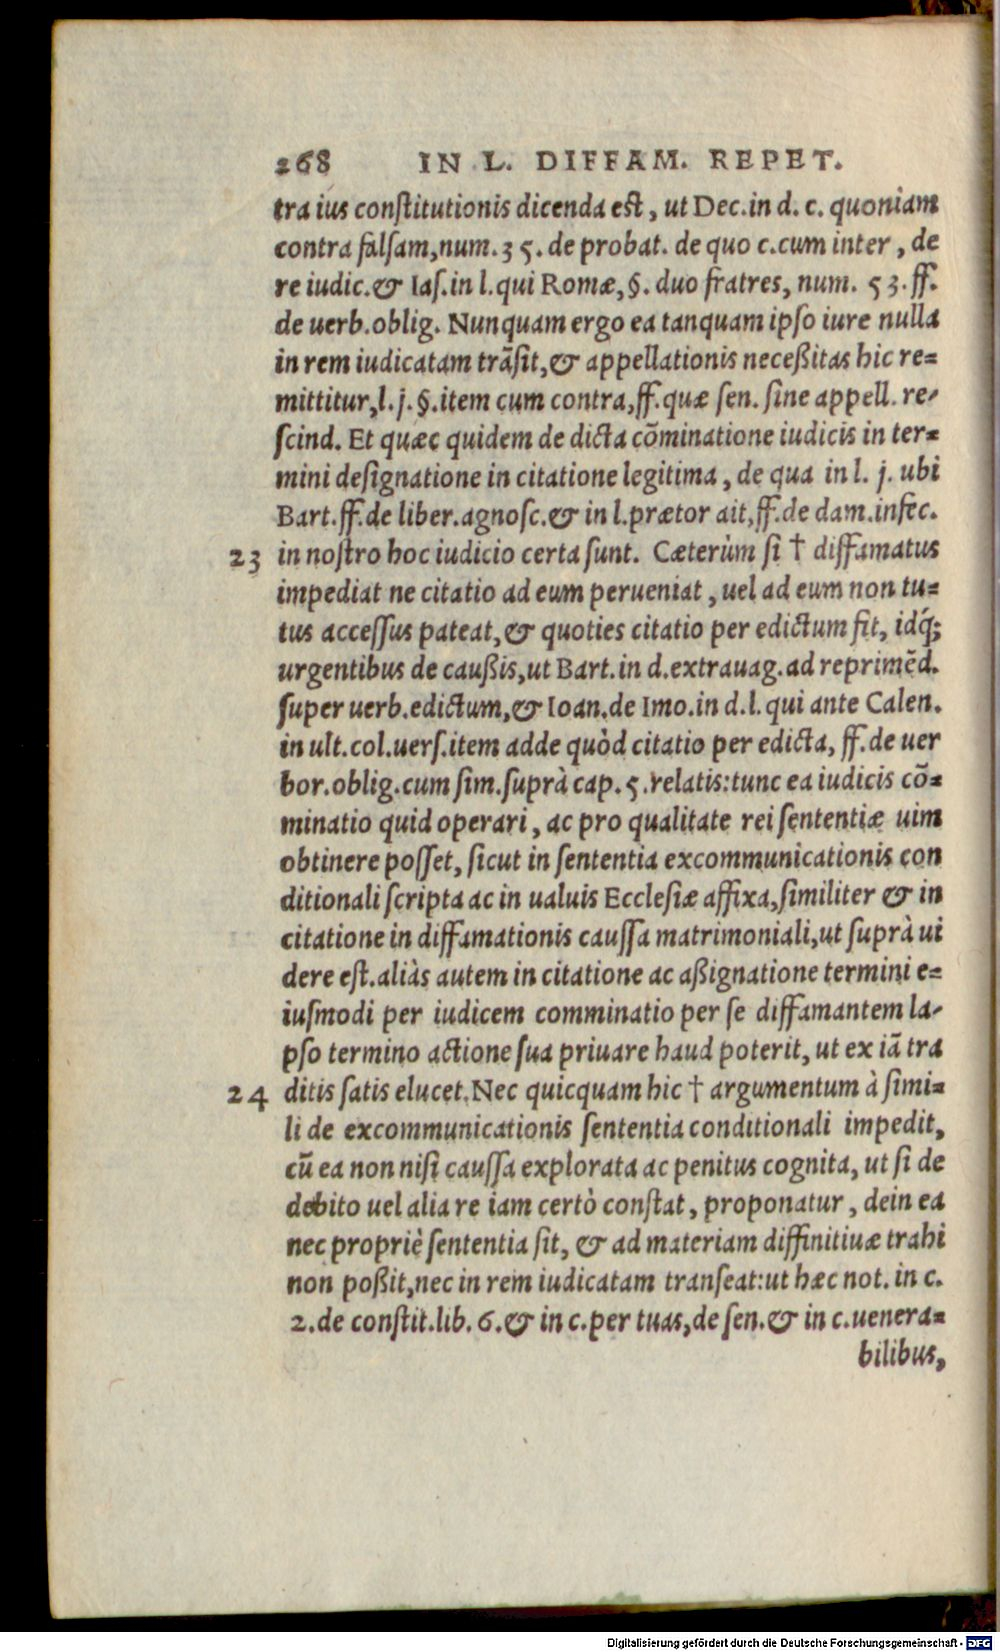 268 IN L. DIFFAM. REPET.
tra ius conſtitutionis dicenda eſt, ut Dec. in d. c. quoniam
contra falſam, num. 35. de probat. de quo c. cum inter, de
re iudic. & Iaſ. in l. qui Romæ, §. duo fratres, num. 53. ff.
de uerb. oblig. Nunquam ergo ea tanquam ipſo iure nulla
in rem iudicatam trãſit, & appellationis neceßitas hic re=
mittitur, l. j. §. item cum contra, ff. quæ ſen. ſine appell. re-
ſcind. Et quæc quidem de dicta cõminatione iudicis in ter=
mini deſignatione in citatione legitima, de qua in l. j. ubi
Bart. ff. de liber. agnoſc. & in l. prætor ait, ff. de dam. infec.
23 in noſtro hoc iudicio certa ſunt. Cæterùm ſi † diffamatus
impediat ne citatio ad eum perueniat, uel ad eum non tu=
tus acceſſus pateat, & quoties citatio per edictum fit, idq́;
urgentibus de caußis, ut Bart. in d. extrauag. ad reprimẽd.
ſuper uerb. edictum, & Ioan. de Imo. in d. l. qui ante Calen.
in ult. col. uerſ. item adde quòd citatio per edicta, ff. de uer
bor. oblig. cum ſim. ſuprà cap. 5. relatis: tunc ea iudicis cõ=
minatio quid operari, ac pro qualitate rei ſententiæ uim
obtinere poſſet, ſicut in ſententia excommunicationis con
ditionali ſcripta ac in ualuis Eccleſiæ affixa, ſimiliter & in
citatione in diffamationis cauſſa matrimoniali, ut ſuprà ui
dere eſt. aliàs autem in citatione ac aßignatione termini e=
iuſmodi per iudicem comminatio per ſe diffamantem la-
pſo termino actione ſua priuare haud poterit, ut ex iã tra
24 ditis ſatis elucet. Nec quicquam hic † argumentum à ſimi=
li de excommunicationis ſententia conditionali impedit,
cũ ea non niſi cauſſa explorata ac penitus cognita, ut ſi de
debito uel alia re iam certò conſtat, proponatur, dein ea
nec propriè ſententia ſit, & ad materiam diffinitiuæ trahi
non poßit, nec in rem iudicatam tranſeat: ut hæc not. in c.
2. de conſtit. lib. 6. & in c. per tuas, de ſen. & in c. uenera=
bilibus,
Digitalisierung gefördert durch die Deutsche Forschungsgemeinschaft - DFG